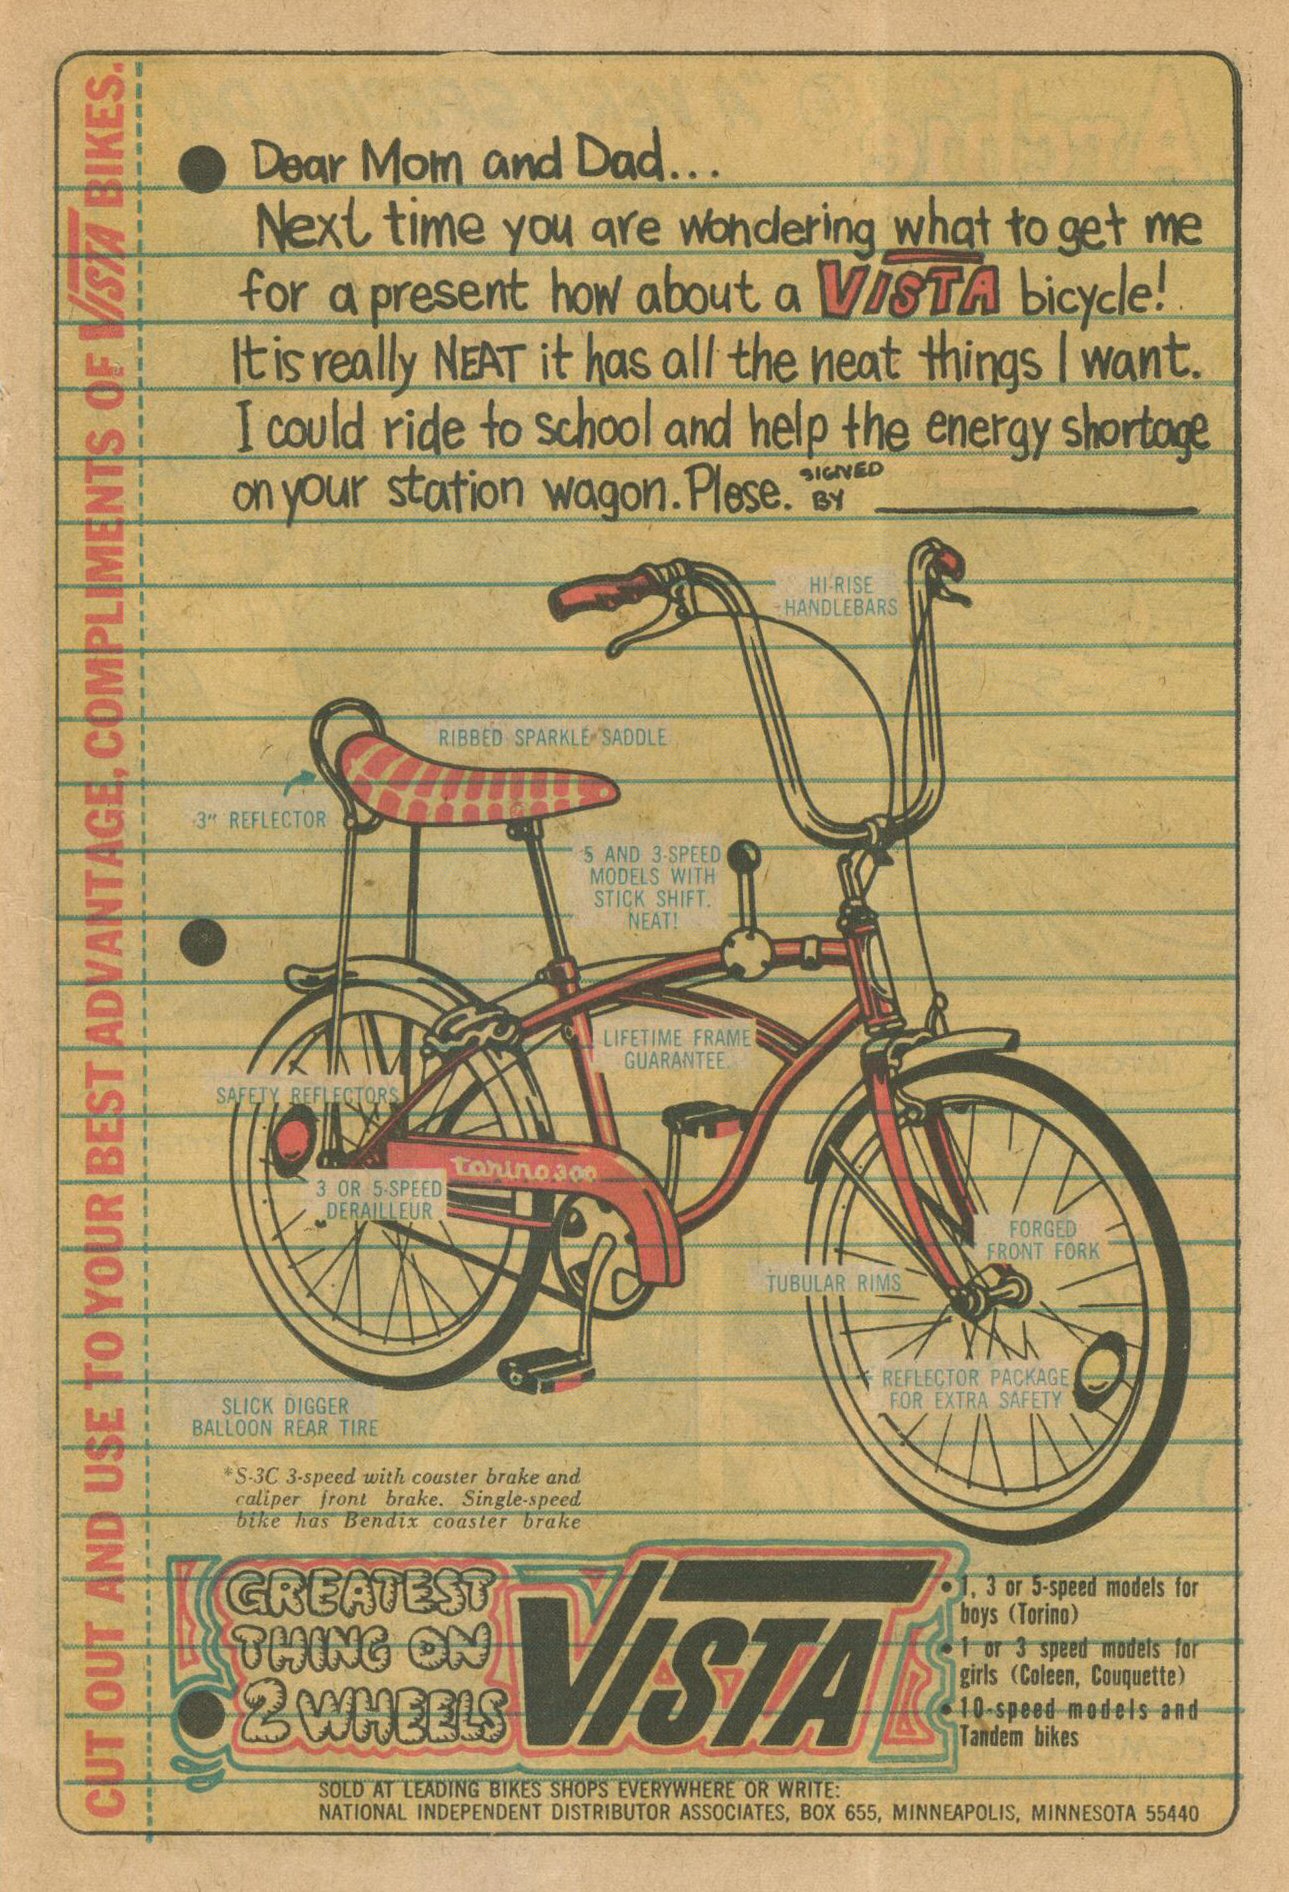 CUT OUT AND USE TO YOUR BEST ADVANTAGE, COMPLIMENTS OF VISTA BIKES.
Dear Mom and Dad...
Next time you are wondering what to get me
for a present how about a VISTA bicycle!
It is really NEAT it has all the neat things I want.
I could ride to school and help the energy shortage
on your station wagon. Plese. SIGNED
BY
HI-RISE
HANDLEBARS
RIBBED SPARKLE SADDLE
3" REFLECTOR
5 AND 3-SPEED
MODELS WITH
STICK SHIFT.
NEAT!
LIFETIME FRAME
GUARANTEE.
SAFETY REFLECTORS
torino 300
3 OR 5-SPEED
DERAILLEUR
FORGED
FRONT FORK
TUBULAR RIMS
REFLECTOR PACKAGE
FOR EXTRA SAFETY
SLICK DIGGER
BALLOON REAR TIRE
*S-3C 3-speed with coaster brake and
caliper front brake. Single-speed
bike has Bendix coaster brake
GREATEST
THING ON
2 WHEELS
VISTA
• 1, 3 or 5-speed models for
boys (Torino)
• 1 or 3 speed models for
girls (Coleen, Couquette)
• 10-speed models and
Tandem bikes
SOLD AT LEADING BIKES SHOPS EVERYWHERE OR WRITE:
NATIONAL INDEPENDENT DISTRIBUTOR ASSOCIATES, BOX 655, MINNEAPOLIS, MINNESOTA 55440